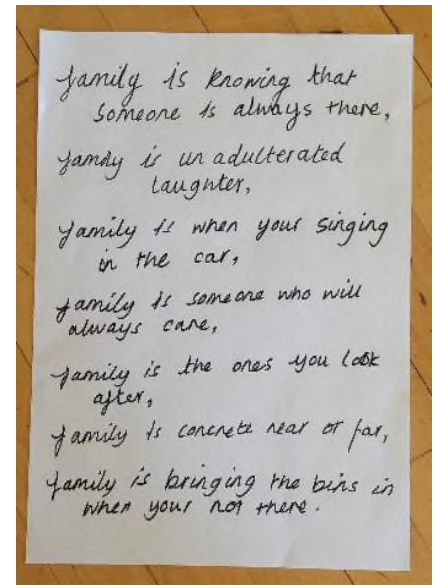 family is knowing that
someone is always there,
family is unadulterated
laughter,
family is when your singing
in the car,
family is someone who will
always care,
family is the ones you look
after,
family is concrete near or far,
family is bringing the bins in
when your not there.